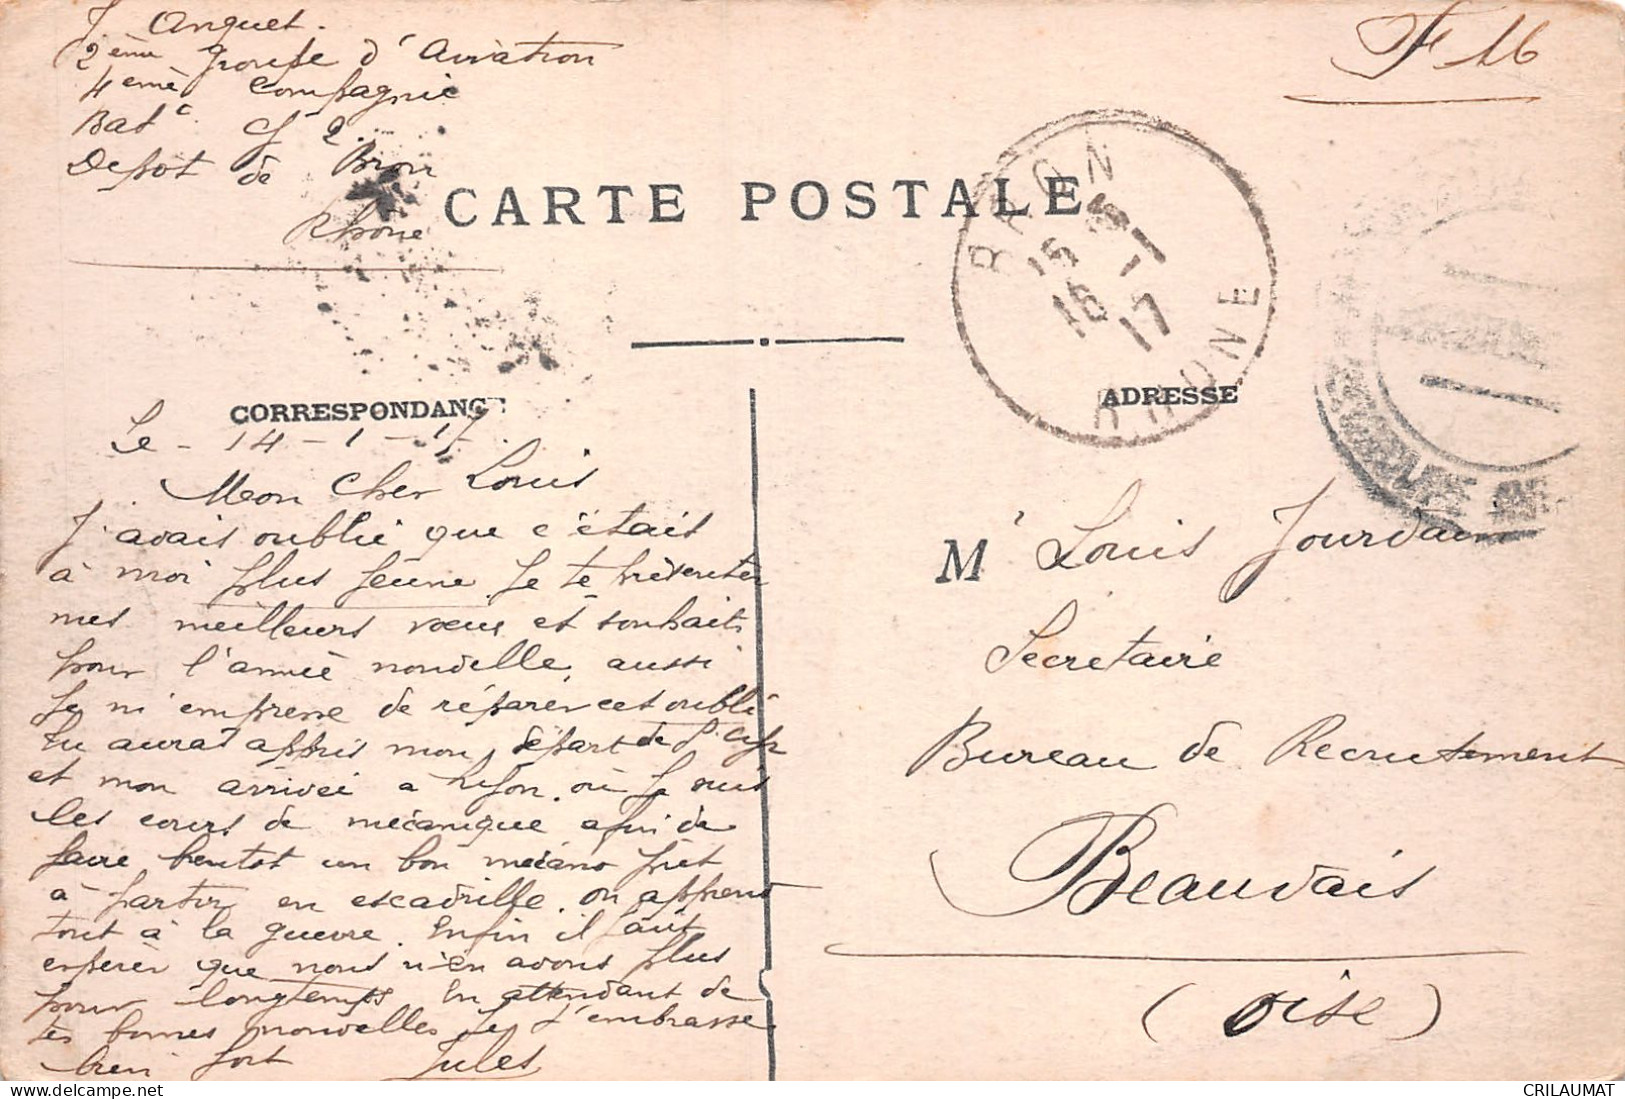 J. Anquet.
2ème groupe d'Aviation
4ème Compagnie
Bat C 2.
Depot de Bron
Rhône
F M
CARTE POSTALE
BRON
15 15
16 -1
17
RHONE
CORRESPONDANCE
ADRESSE
Le - 14 - 1 - 17
Mon Cher Louis
J'avais oublié que c'était
à moi plus jeune de te présenter
mes meilleurs vœux et souhaits
pour l'année nouvelle, aussi
je m'empresse de réparer cet oubli
tu auras appris mon départ de
et mon arrivée à Lyon. où je suis
les cours de mécanique afin de
faire bientot un bon mécano prêt
à partir en escadrille. on apprend
tout à la guerre. Enfin il faut
espérer que nous n'en avons plus
pour longtemps. En attendant de
tes bonnes nouvelles je t'embrasse
bien fort Jules
Mr Louis Jourdain
Secretaire
Bureau de Recrutement
Beauvais
(Oise)
CRILAUMAT